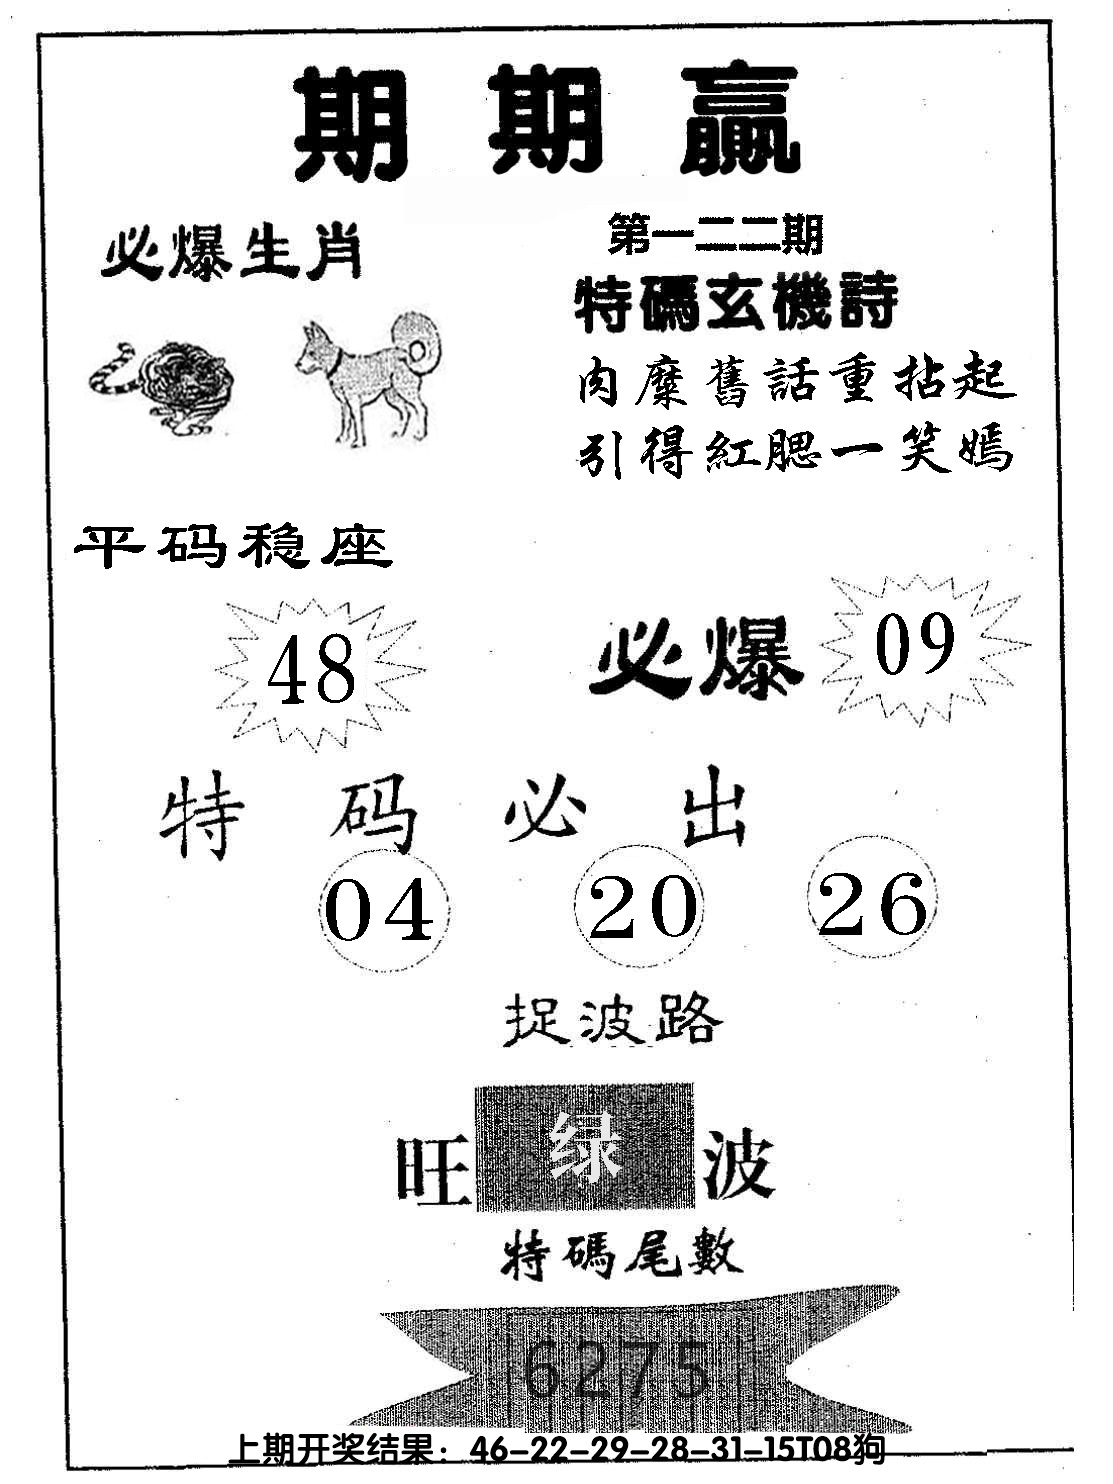 期期赢
必爆生肖
第一二二期
特碼玄機詩
肉糜舊話重拈起
引得紅腮一笑嫣
平码稳座
48
必爆
09
特码必出
04 20 26
捉波路
旺绿波
特碼尾數
6275
上期开奖结果：46-22-29-28-31-15T08狗